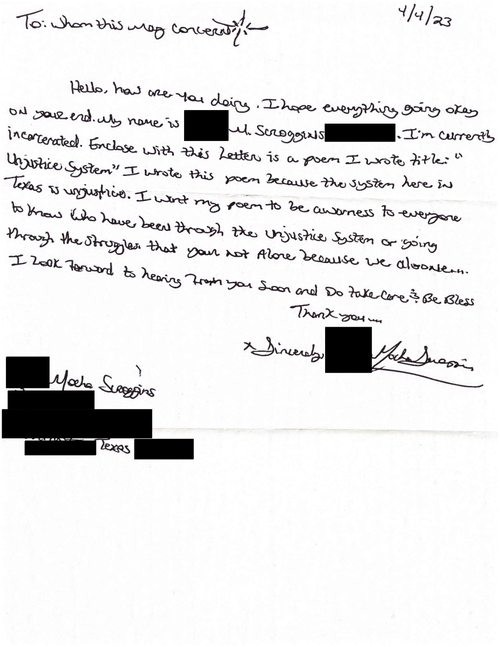 4/4/23
To: whom this may concern
Hello, how are you doing. I hope everything going okay
on your end. My name is M. Scroggins. I'm currently
incarcerated. Enclose with this Letter is a poem I wrote title: "
Unjustice System" I wrote this poem because the system here in
Texas is unjustice. I want my poem to be awarness to everyone
to know who have been through the Unjustice System or going
through the struggles that your not Alone because we
I look forward to hearing from you soon and Do take care & Be Bless
Thank you...
x Sincerely Mocha Scroggins
Mocha Scroggins
Texas